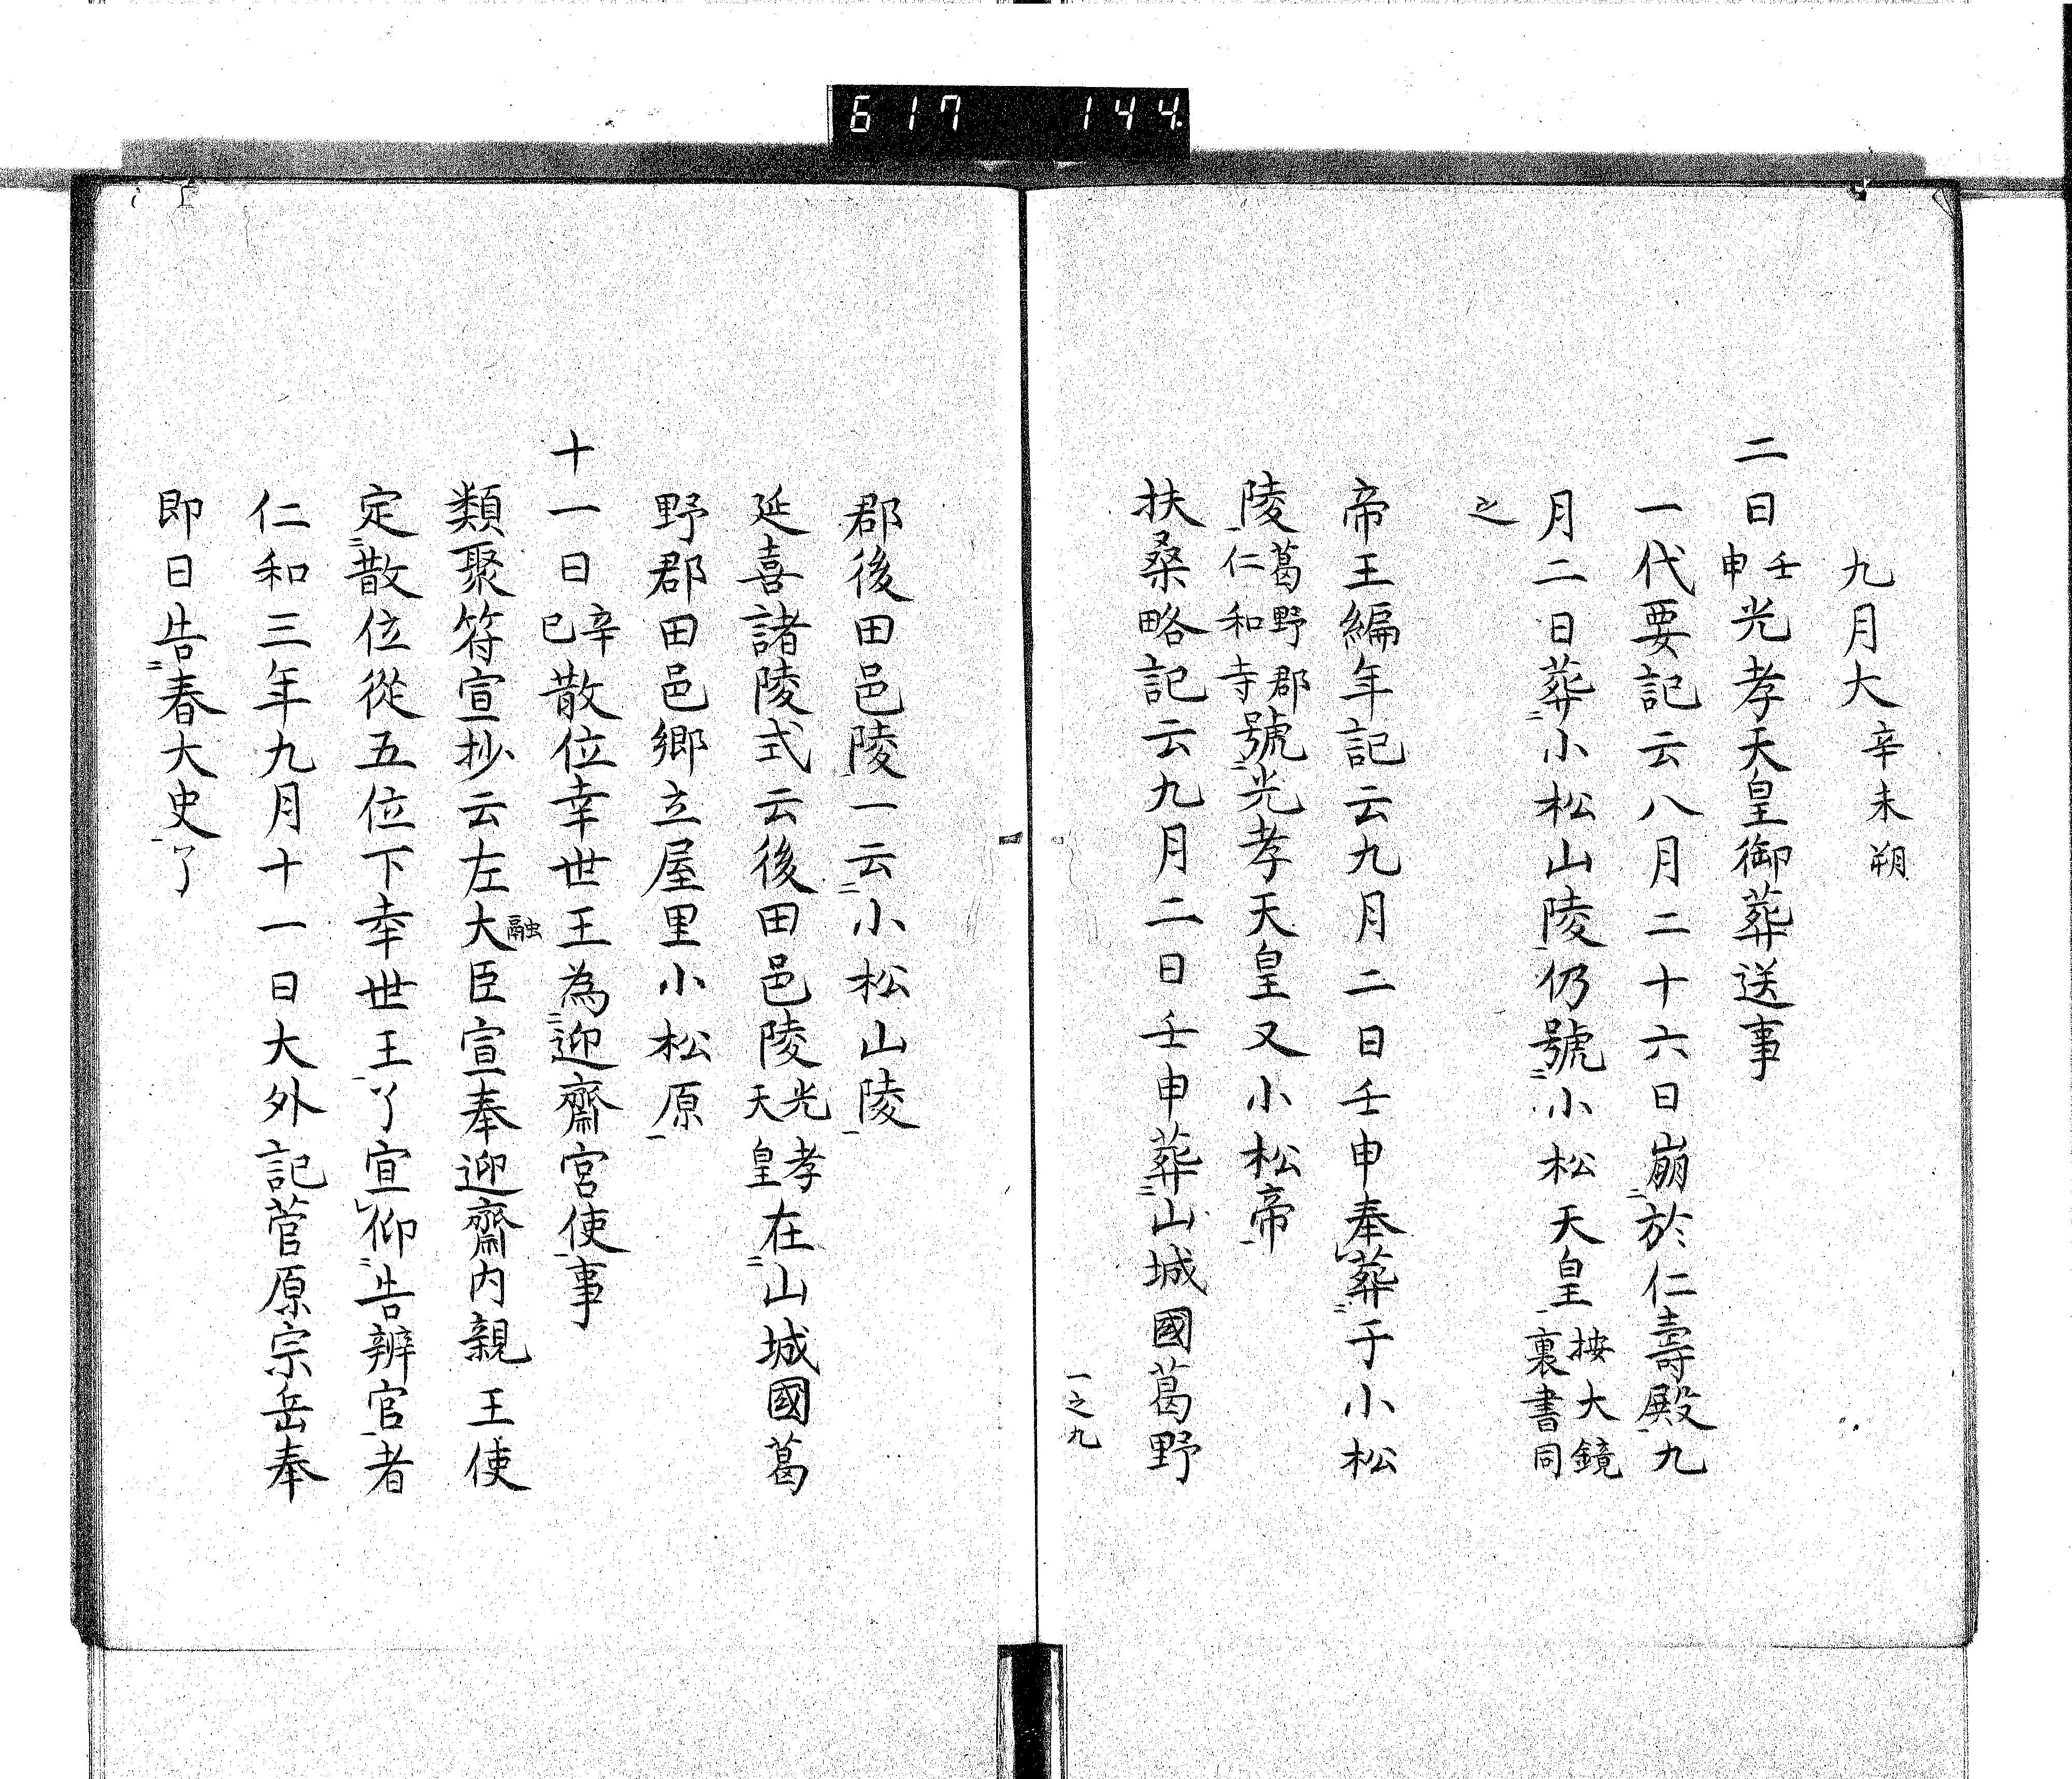 617 144
九月大辛未朔
二日壬申光孝天皇御葬送事
一代要記云八月二十六日崩於仁壽殿九
月二日葬小松山陵仍號小松天皇按大鏡裏書同
之
帝王編年記云九月二日壬申奉葬于小松
陵葛野郡仁和寺號光孝天皇又小松帝
扶桑略記云九月二日壬申葬山城國葛野
一之九
郡後田邑陵一云小松山陵
延喜諸陵式云後田邑陵光孝天皇在山城國葛
野郡田邑郷立屋里小松原
十一日辛巳散位幸世王為迎齋宮使事
類聚符宣抄云左大臣融宣奉迎齋内親王使
定散位從五位下幸世王了宣仰告辨官者
仁和三年九月十一日大外記菅原宗岳奉
即日告春大史了